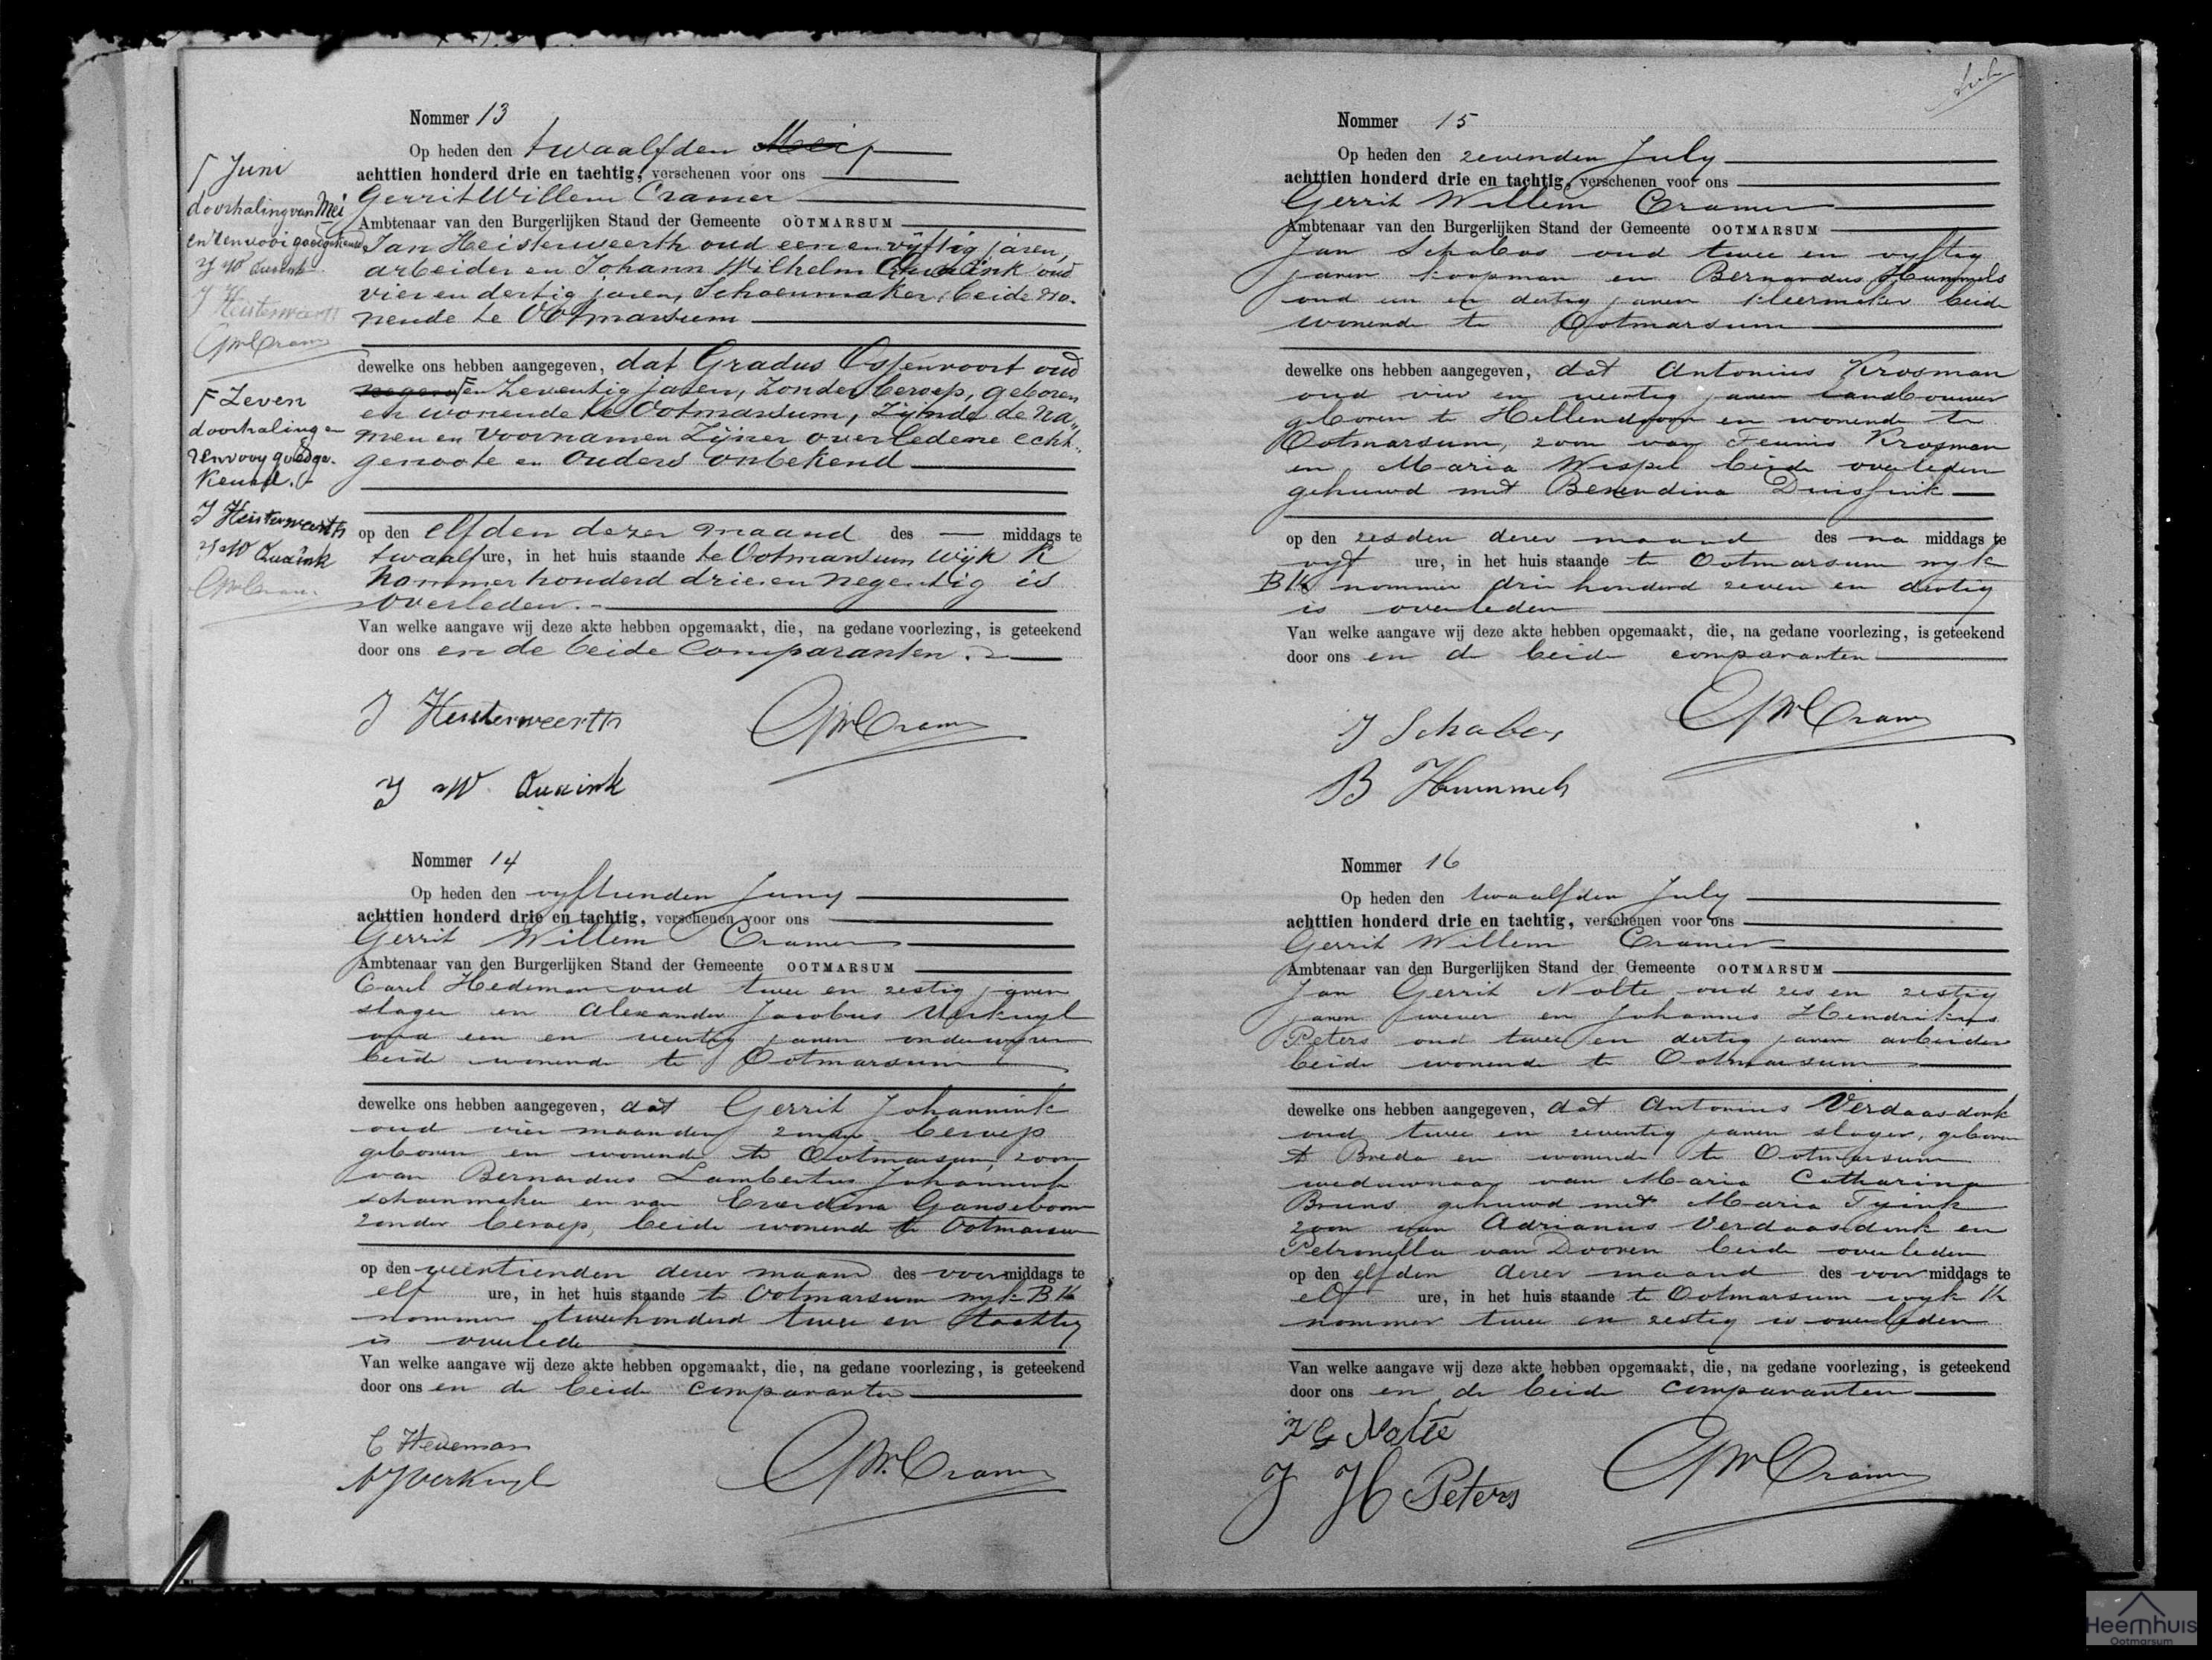 Nommer 13
Op heden den twaalfden Mei
achttien honderd drie en tachtig, verschenen voor ons
Gerrit Willem Cramer
Ambtenaar van den Burgerlijken Stand der Gemeente OOTMARSUM
Jan Heisterweerth oud een en vijftig jaren,
arbeider en Johann Wilhelm oud
vier en dertig jaren, Schoenmaker, beide wo-
nende te Ootmarsum
dewelke ons hebben aangegeven, dat Gradus Ossenvoort oud
negen en Zeventig jaren, Zonder beroep, geboren
en wonende te Ootmarsum, Zijnde de Na-
men en Voornamen Zijner overledene echt-
genoote en Ouders onbekend
op den elfden dezer maand des — middags te
twaalf ure, in het huis staande te Ootmarsum Wijk K
Nommer honderd drie en negentig is
overleden.
Van welke aangave wij deze akte hebben opgemaakt, die, na gedane voorlezing, is geteekend
door ons en de beide Comparanten.
J Heisterweerth
GWCramer
J W
Juni
doorhaling van Mei
en renvooi goedgekeurd
J W
J Heisterweerth
GWCramer
Zeven
doorhaling en
renvooy goedge-
keurd.
J Heisterweerth
J W
GWCramer
Nommer 14
Op heden den vyftienden Juny
achttien honderd drie en tachtig, verschenen voor ons
Gerrit Willem Cramer
Ambtenaar van den Burgerlijken Stand der Gemeente OOTMARSUM
Carel Hedeman oud twee en zestig jaren
slager en Alexander Jacobus Verkuyl
oud een en veertig jaren onderwyzer
beide wonende te Ootmarsum
dewelke ons hebben aangegeven, dat Gerrit Johannink
oud vier maanden zonder beroep
geboren en wonende te Ootmarsum, zoon
van Bernardus Lambertus Johannink
schoenmaker en van Everdina Ganseboom
zonder beroep, beide wonend te Ootmarsum
op den veertienden dezer maand des voormiddags te
elf ure, in het huis staande te Ootmarsum wyk B K
nommer tweehonderd twee en tachtig
is overleden
Van welke aangave wij deze akte hebben opgemaakt, die, na gedane voorlezing, is geteekend
door ons en de beide comparanten
C Hedeman
AJVerkuyl
GW.Cramer
Nommer 15
Op heden den zevenden July
achttien honderd drie en tachtig, verschenen voor ons
Gerrit Willem Cramer
Ambtenaar van den Burgerlijken Stand der Gemeente OOTMARSUM
Jan Schabos oud twee en vyftig
jaren koopman en Bernardus Hummels
oud een en dertig jaren kleermaker beide
wonende te Ootmarsum
dewelke ons hebben aangegeven, dat Antonius Krosman
oud vier en veertig jaren landbouwer
geboren te Hellendoorn en wonende te
Ootmarsum, zoon van Teunis Krosman
en Maria Wespel beide overleden
gehuwd met Berendina
op den zesden dezer maand des na middags te
vyf ure, in het huis staande te Ootmarsum wyk
B K nommer drie honderd zeven en dertig
is overleden
Van welke aangave wij deze akte hebben opgemaakt, die, na gedane voorlezing, is geteekend
door ons en de beide comparanten
J Schabos
GWCramer
B Hummels
Nommer 16
Op heden den twaalfden July
achttien honderd drie en tachtig, verschenen voor ons
Gerrit Willem Cramer
Ambtenaar van den Burgerlijken Stand der Gemeente OOTMARSUM
Jan Gerrit Nolte oud zes en zestig
jaren wever en Johannes Hendrikus
Peters oud twee en dertig jaren arbeider
beide wonende te Ootmarsum
dewelke ons hebben aangegeven, dat Antonius Verdaasdonk
oud twee en zeventig jaren slager, geboren
te Breda en wonende te Ootmarsum
weduwnaar van Maria Catharina
Bruns gehuwd met Maria Tyink
zoon van Adrianus Verdaasdonk en
Petronella van Dooren beide overleden
op den elfden dezer maand des voor middags te
elf ure, in het huis staande te Ootmarsum wyk K
nommer twee en zestig is overleden
Van welke aangave wij deze akte hebben opgemaakt, die, na gedane voorlezing, is geteekend
door ons en de beide comparanten
J G Nolte
J H Peters
GWCramer
Heemhuis
Ootmarsum